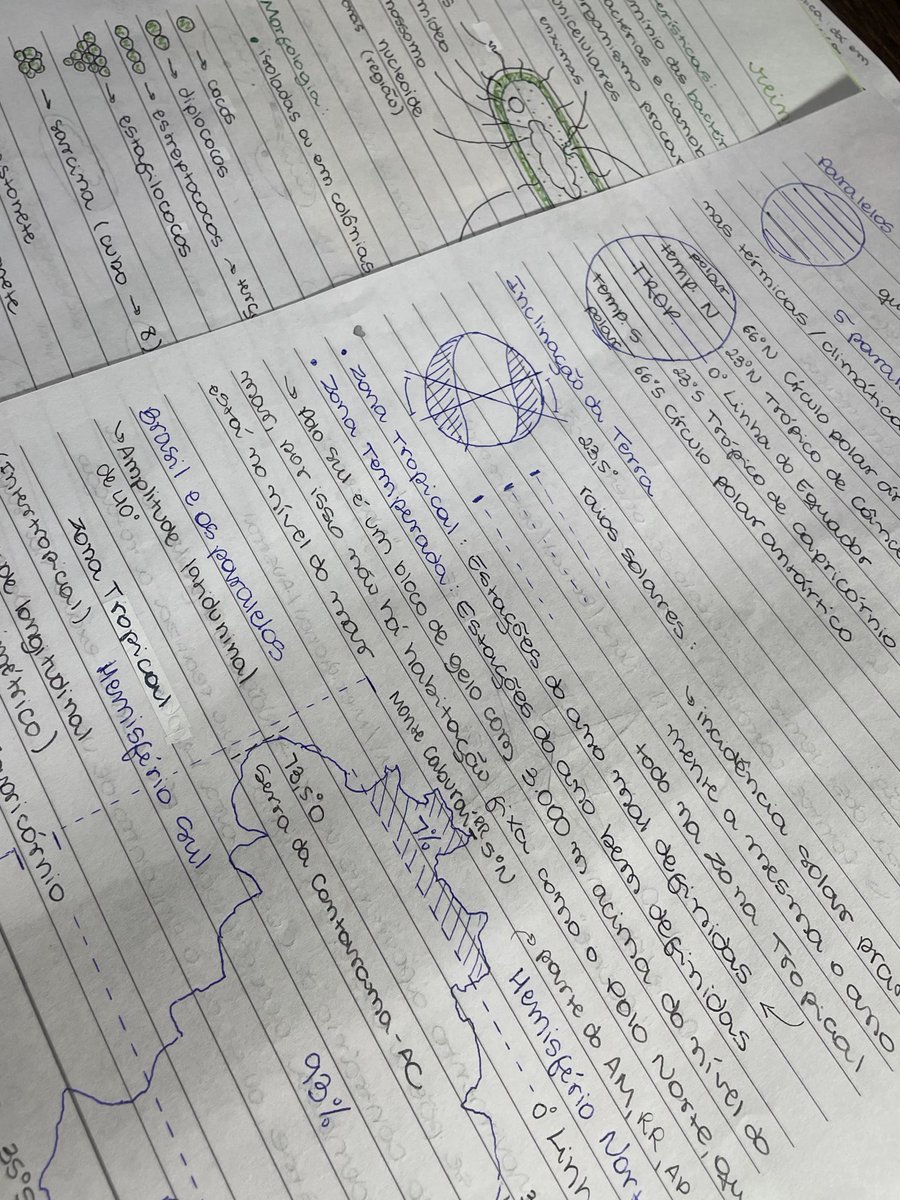 Características:
domínio das
bactérias e
organismo
unicelulares
enzimas
nucleoide
(região)
Morfologia:
• isoladas ou em colônias
→ cocos
→ diplococos
→ estreptococos
→ estafilococos
→ sarcina (cubo → 8)
Paralelos
nas térmicas/climáticas
polar
temp. N
TROP.
temp. S
polar
66°N Círculo polar
23°N Trópico de
0° Linha do Equador
23°S Trópico de capricórnio
66°S círculo polar antártico
Inclinação da Terra
23,5°
raios solares:
↳ incidência solar
mente a mesma o ano
todo na zona Tropical
• Zona Tropical: Estações do ano mal definidas
• Zona Temperada: Estações do ano bem definidas
→ Polo sul é um bloco de gelo com 3.000 m acima do nível do
mar, por isso não há habitação fixa como o Polo Norte, que
está no nível do mar
Brasil e os paralelos
↳ Amplitude latidudinal
de 40°
Monte Caburaí RR 5°N
7%
Hemisfério
→ parte do AM, RR, AP
0°
73,5°O
Serra da Contamana - AC
93%
Zona Tropical
(Intertropical)
Hemisfério Sul
de longitudinal
35°S